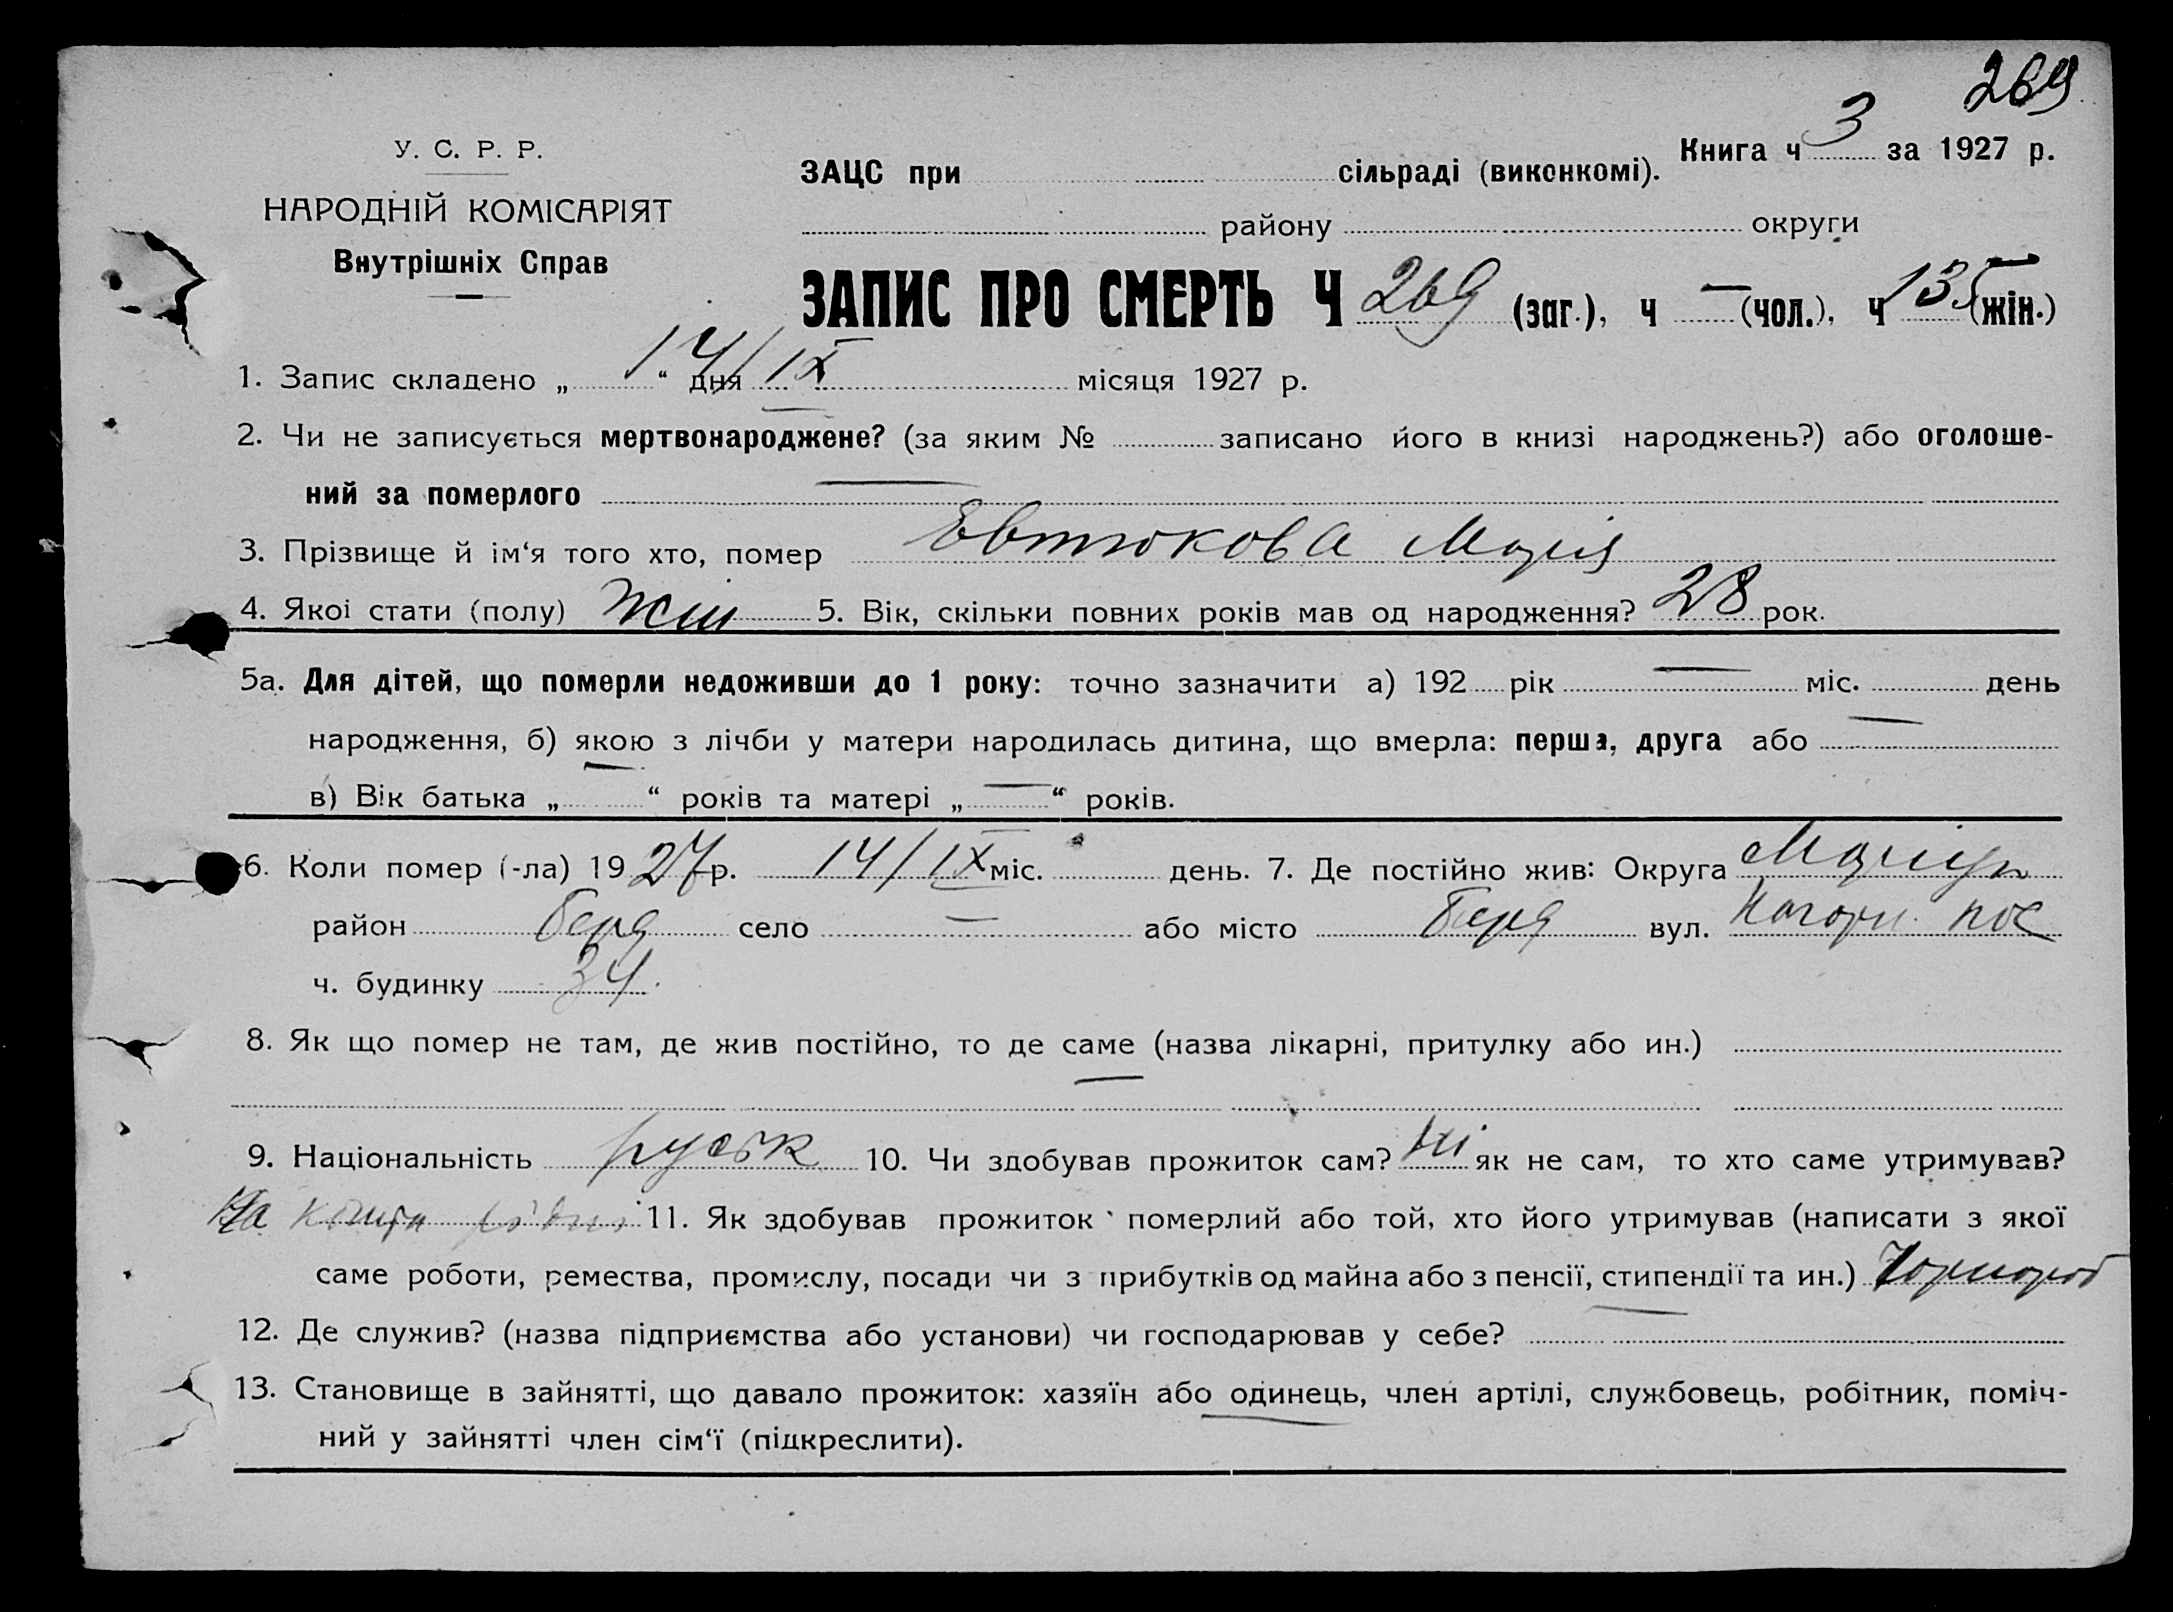 269
У. С. Р. Р.
НАРОДНІЙ КОМІСАРІЯТ
Внутрішніх Справ
ЗАЦС при сільраді (виконкомі). Книга ч 3 за 1927 р.
району округи
ЗАПИС ПРО СМЕРТЬ Ч 269 (заг.), ч — (чол.), ч 135 (жін.)
1. Запис складено „ 14/ “ дня IX місяця 1927 р.
2. Чи не записується мертвонароджене? (за яким № записано його в книзі народжень?) або оголоше-
ний за померлого —
3. Прізвище й ім‘я того хто, помер Евтюкова Марія
4. Якоі стати (полу) жін 5. Вік, скільки повних років мав од народження? 28 рок.
5а. Для дітей, що померли недоживши до 1 року: точно зазначити а) 192 рік — міс. день
народження, б) якою з лічби у матери народилась дитина, що вмерла: перша, друга або —
в) Вік батька „ — “ років та матері „ — “ років.
6. Коли помер (-ла) 19 27 р. 14/IX міс. день. 7. Де постійно жив: Округа Маріуп
район Берд село — або місто Берд вул. Нагорн. пос
ч. будинку 34.
8. Як що помер не там, де жив постійно, то де саме (назва лікарні, притулку або ин.)
—
9. Національність руськ 10. Чи здобував прожиток сам? Ні як не сам, то хто саме утримував?
На кошти рідні 11. Як здобував прожиток померлий або той, хто його утримував (написати з якої
саме роботи, ремества, промислу, посади чи з прибутків од майна або з пенсії, стипендії та ин.) Чорнороб
12. Де служив? (назва підприємства або установи) чи господарював у себе? —
13. Становище в зайнятті, що давало прожиток: хазяїн або одинець, член артілі, службовець, робітник, поміч-
ний у зайнятті член сім‘ї (підкреслити).